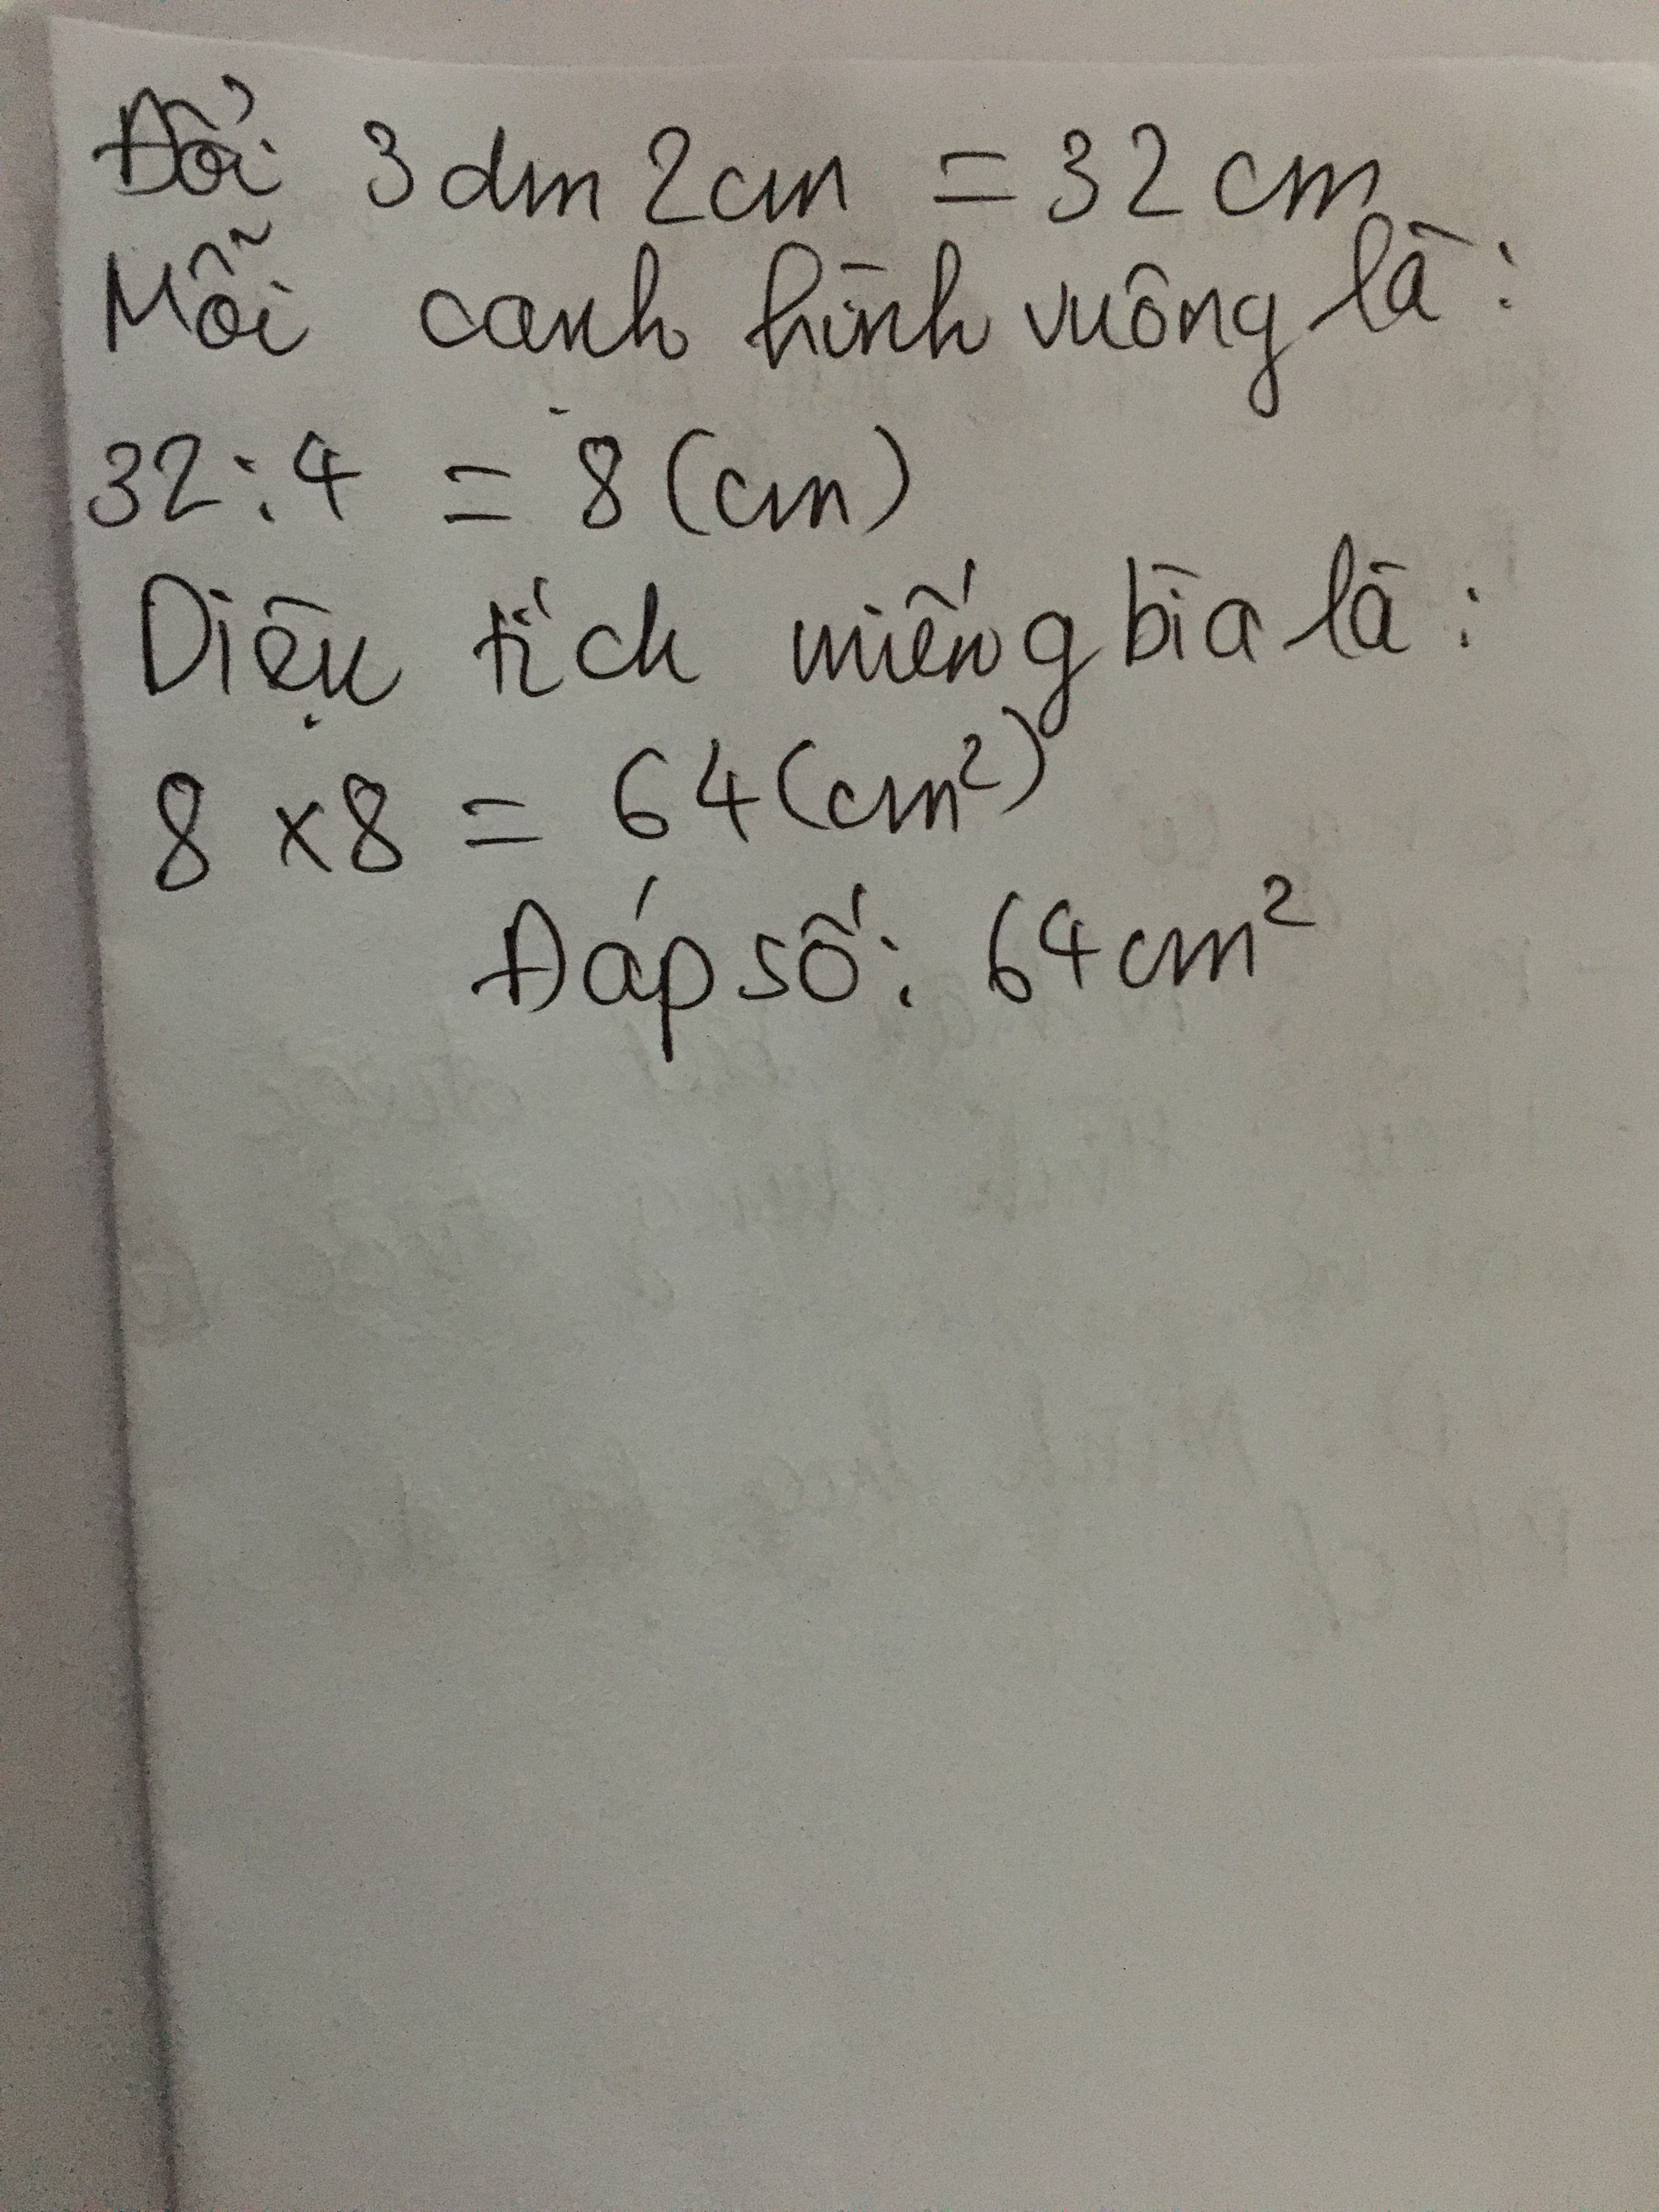 Đổi 3dm 2cm = 32 cm
Mỗi cạnh hình vuông là:
32 : 4 = 8 (cm)
Diện tích miếng bìa là:
8 x 8 = 64 (cm²)
Đáp số: 64 cm²